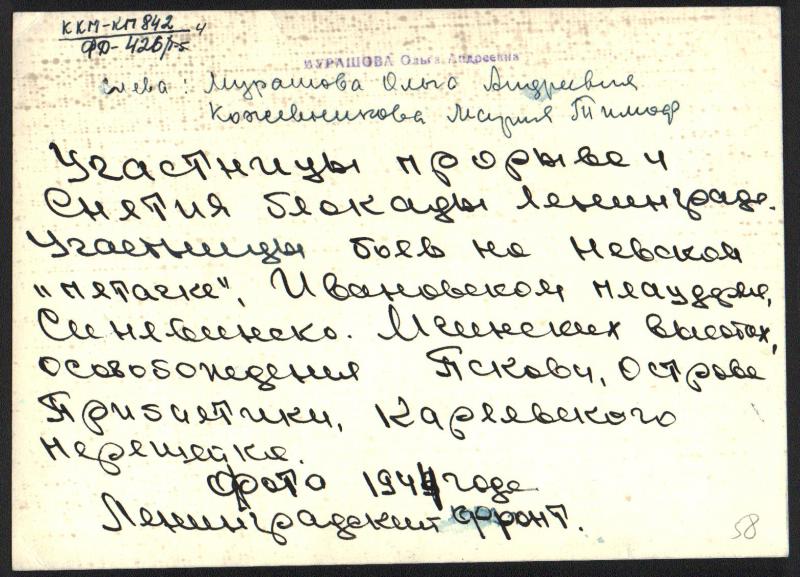 ККМ-КП 842 4
ФД-426/1-5
МУРАШОВА Ольга Андреевна
слева: Мурашова Ольга Андреевна
Кожевникова Мария Тимоф
Участницы прорыва и
снятия блокады Ленинграда.
Участницы боев на Невском
"пятачке", Ивановском плацдарме,
Синявинско. Мгинских высотах,
освобождения Пскова, Острова
Прибалтики, Карельского
перешейка.
Фото 1944 года
Ленинградский фронт.
58